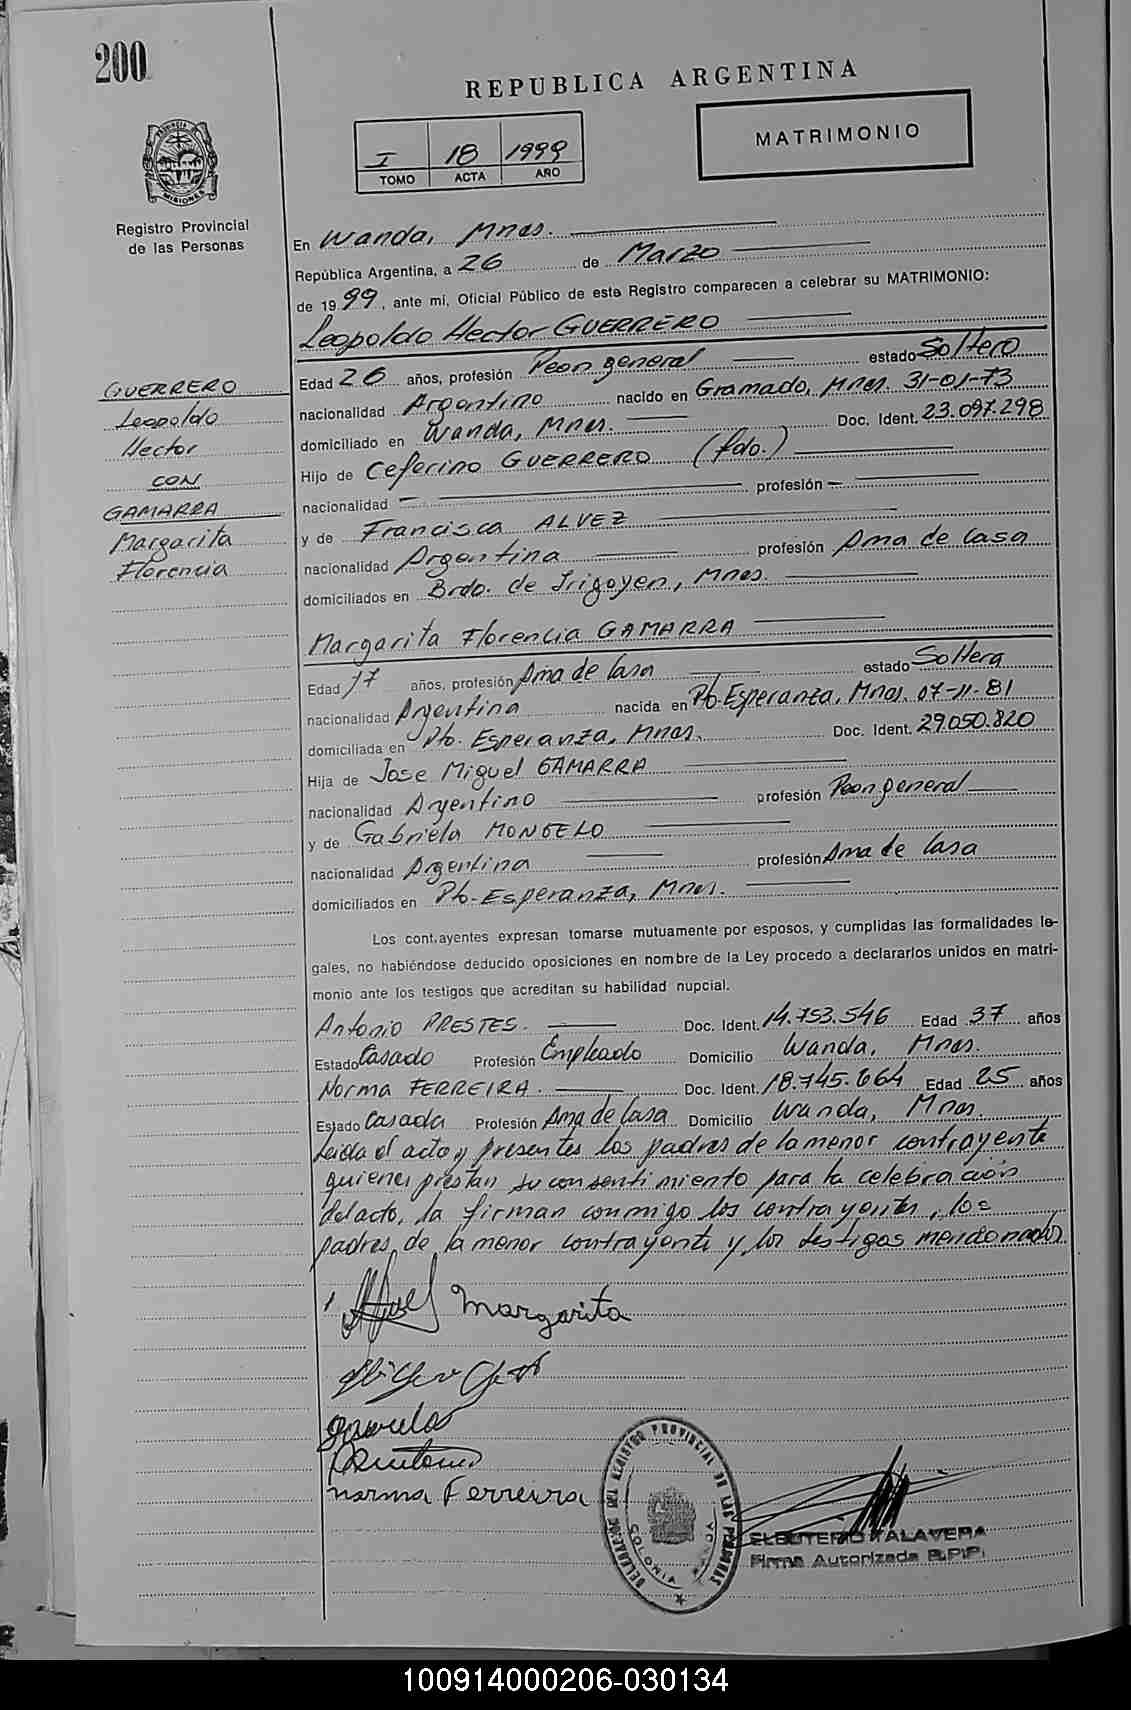 200
REPUBLICA ARGENTINA
MATRIMONIO
I 18 1999
TOMO ACTA AÑO
PROVINCIA DE MISIONES
Registro Provincial
de las Personas
En Wanda, Mnes.
República Argentina, a 26 de Marzo
de 1999, ante mi, Oficial Público de este Registro comparecen a celebrar su MATRIMONIO:
Leopoldo Hector GUERRERO
Edad 26 años, profesión Peon general estado Soltero
nacionalidad Argentino nacido en Gramado, Mnes. 31-01-73
domiciliado en Wanda, Mnes. Doc. Ident. 23.097.298
Hijo de Ceferino GUERRERO (fdo.)
nacionalidad — profesión —
y de Francisca ALVEZ
nacionalidad Argentina profesión Ama de Casa
domiciliados en Brdo. de Irigoyen, Mnes.
GUERRERO
Leopoldo
Hector
CON
GAMARRA
Margarita
Florencia
Margarita Florencia GAMARRA
Edad 17 años, profesión Ama de Casa estado Soltera
nacionalidad Argentina nacida en Pto. Esperanza, Mnes. 07-11-81
domiciliada en Pto. Esperanza, Mnes. Doc. Ident. 29.050.820
Hija de Jose Miguel GAMARRA
nacionalidad Argentino profesión Peon general
y de Gabriela MONGELO
nacionalidad Argentina profesión Ama de Casa
domiciliados en Pto. Esperanza, Mnes.
Los contrayentes expresan tomarse mutuamente por esposos, y cumplidas las formalidades le-
gales, no habiéndose deducido oposiciones en nombre de la Ley procedo a declararlos unidos en matri-
monio ante los testigos que acreditan su habilidad nupcial.
Antonio PRESTES. Doc. Ident. 14.753.546 Edad 37 años
Estado Casado Profesión Empleado Domicilio Wanda, Mnes.
Norma FERREIRA. Doc. Ident. 18.745.664 Edad 25 años
Estado Casada Profesión Ama de Casa Domicilio Wanda, Mnes.
Leida el acta y presentes los padres de la menor contrayente
quienes prestan su consentimiento para la celebración
del acto, la firman conmigo los contrayentes, los
padres de la menor contrayente y los testigos mencionados
Margarita
Norma Ferreira
DELEGACION DEL REGISTRO PROVINCIAL DE LAS PERSONAS
COLONIA WANDA
ELEUTERIO TALAVERA
Firma Autorizada R.P.P.
100914000206-030134